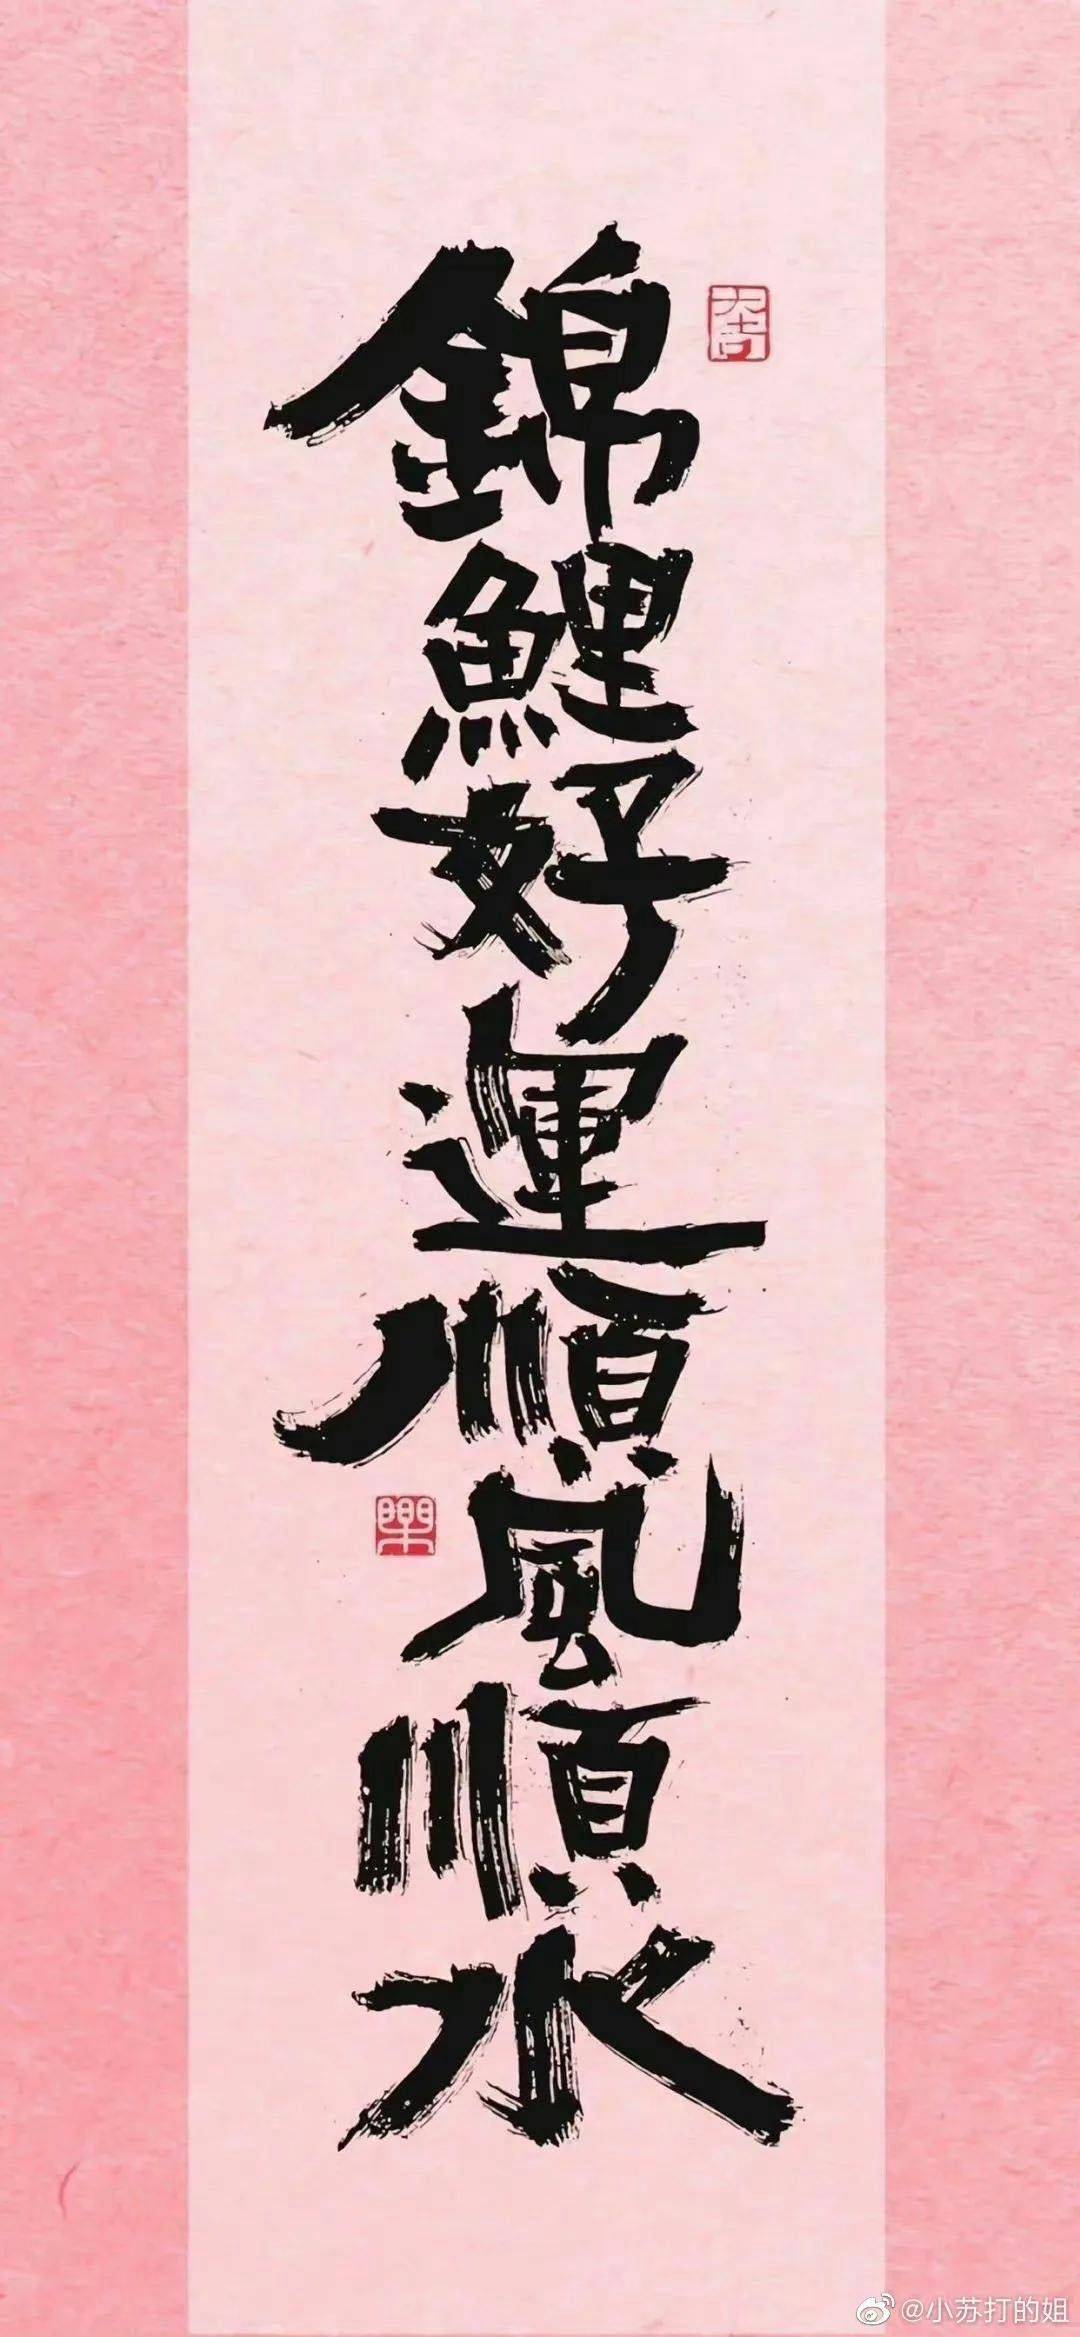 錦鯉好運順風順水
@小苏打的姐